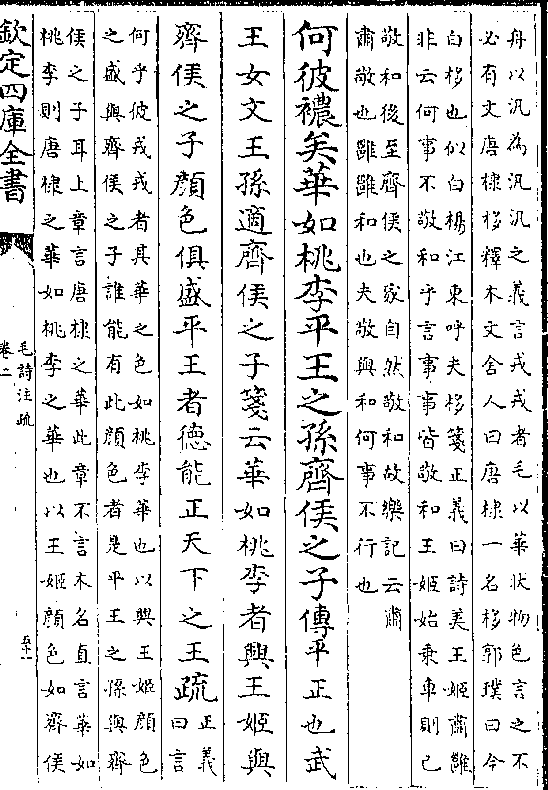 舟以汎為汎汎之義言戎戎者毛以華狀物色言之不
必有文唐棣栘釋木文舍人曰唐棣一名栘郭璞曰今
白栘也似白楊江東呼夫栘箋正義曰詩美王姬肅雝
非云何事不敬和乎言事事皆敬和王姬始乗車則已
敬和後至齊侯之家自然敬和故樂記云肅
肅敬也雝雝和也夫敬與和何事不行也
何彼襛矣華如桃李平王之孫齊侯之子傳平正也武
王女文王孫適齊侯之子箋云華如桃李者興王姬與
齊侯之子顔色俱盛平王者徳能正天下之王疏正義
曰言
何乎彼戎戎者其華之色如桃李華也以興王姬顔色
之盛與齊侯之子誰能有此顔色者是平王之孫與齊
侯之子耳上章言唐棣之華此章不言木名直言華如
桃李則唐棣之華如桃李之華也以王姬顔色如齊侯
欽定四庫全書
毛詩注疏
卷二
五十一